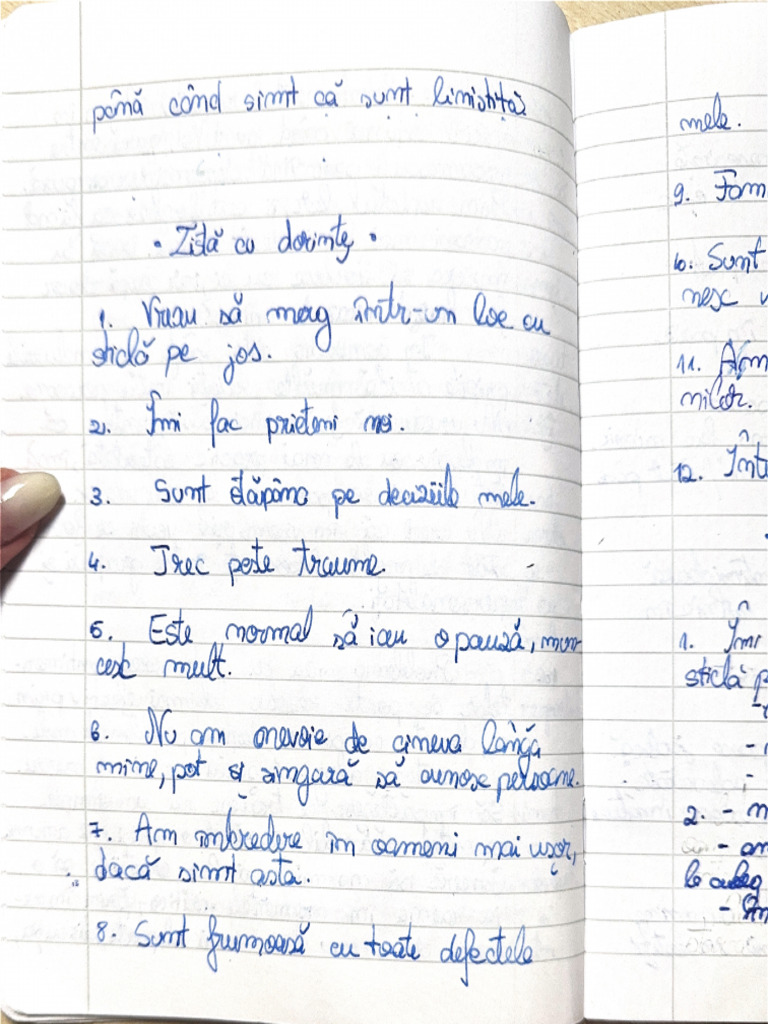 până când simt că sunt liniștită
• Listă cu dorințe •
1. Vreau să merg într-un loc cu
sticlă pe jos.
2. Îmi fac prieteni noi.
3. Sunt stăpână pe deciziile mele.
4. Trec peste traume.
5. Este normal să iau o pauză, mun
cesc mult.
6. Nu am nevoie de cineva lângă
mine, pot și singură să cunosc persoane.
7. Am încredere în oameni mai ușor,
dacă simt asta.
8. Sunt frumoasă cu toate defectele
mele.
9. Fam
10. Sunt
nesc
11. Am
nilor.
12. Înt
1. Îmi
sticlă p
2. - m
- am
le culeg